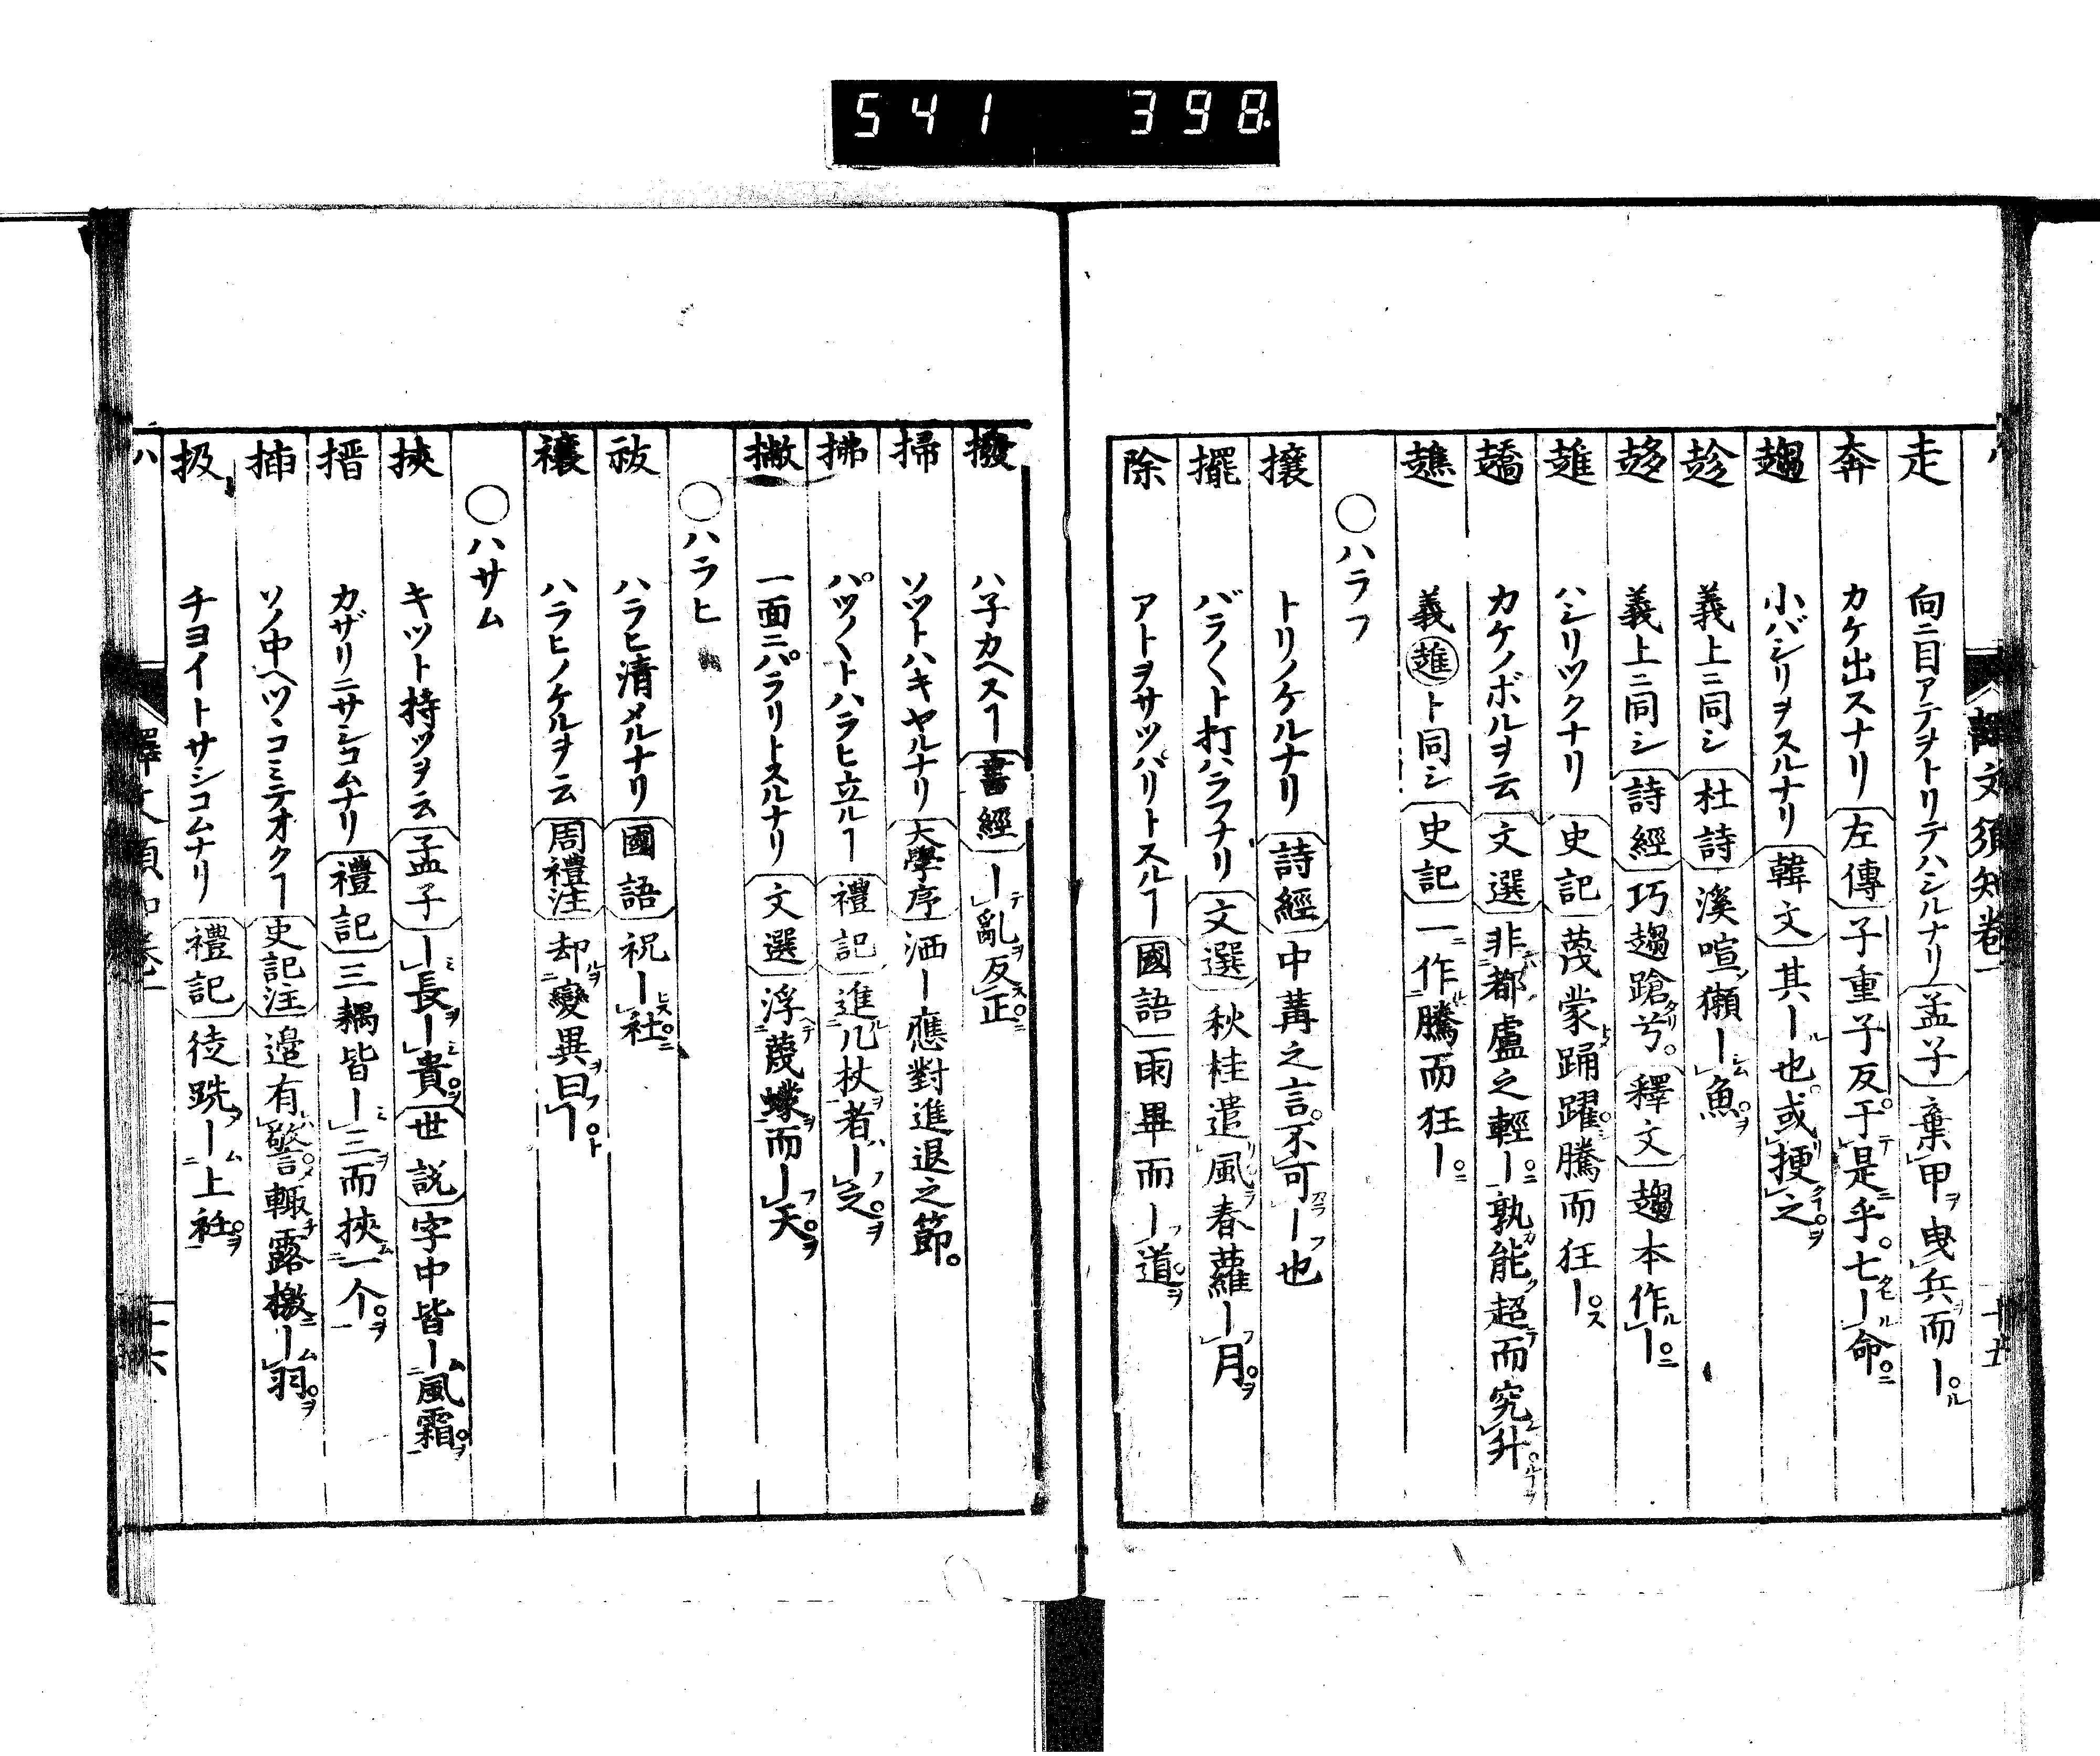 541 398
譯文須知卷一
走 向ニ目アテヲトリテハシルナリ 孟子 棄甲ヲ曳兵ヲ而ー
奔 カケ出スナリ 左傳 子重子反于是乎七ー命
趨 小バシリヲスルナリ 韓文 其ー也或挭之
趁 義上ニ同シ 杜詩 溪喧獺ー魚
趍 義上ニ同シ 詩經 巧趨蹌兮 釋文 趨本作ー
趡 ハシリツクナリ 史記 蔑蒙踊躍騰而狂ー
趫 カケノボルヲ云 文選 非都盧之輕ー孰能超而究升
趭 義趡ト同シ 史記 一作騰而狂ー
○ハラフ
攘 トリノケルナリ 詩經 中冓之言不可ー也
擺 バラ〱ト打ハラフナリ 文選 秋桂遣風春蘿ー月
除 アトヲサッパリトスルヿ 國語 雨畢而ー道
撥 ハ子カヘスヿ 書經 ー亂反正
掃 ソットハキヤルナリ 大學序 洒ー應對進退之節
拂 パツ〱トハラヒ立ルヿ 禮記 進几杖者ー之
撇 一面ニパラリトスルナリ 文選 浮蔑蠓而ー天
○ハラヒ
祓 ハラヒ清メルナリ 國語 祝ー社
禳 ハラヒノケルヲ云 周禮注 却變異曰ー
○ハサム
挾 キット持ツヲ云 孟子 ー長ー貴 世説 字中皆ー風霜
搢 カザリニサシコムナリ 禮記 三耦皆ー三而挾一个
揷 ソノ中ヘツヽコミテオクヿ 史記注 邉有警輙露檄ー羽
扱 チヨイトサシコムナリ 禮記 徒跣ー上衽
ハ 譯文須知卷一 二十六